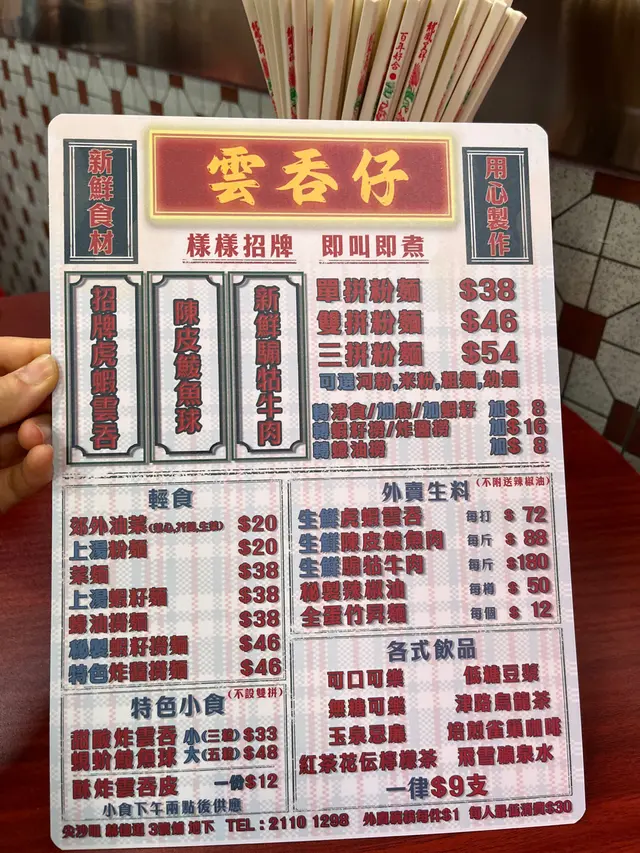 百年好合
龍鳳呈祥
新鮮食材
雲吞仔
用心製作
樣樣招牌 即叫即煮
招牌虎蝦雲吞
陳皮鯪魚球
新鮮騸牯牛肉
單拼粉麵 $38
雙拼粉麵 $46
三拼粉麵 $54
可選河粉,米粉,粗麵,幼麵
轉淨食/加底/加蝦籽 加$ 8
轉蝦籽撈/炸醬撈 加$16
轉蠔油撈 加$ 8
輕食
郊外油菜 $20
上湯粉麵 $20
菜麵 $38
上湯蝦籽麵 $38
蠔油撈麵 $38
秘製蝦籽撈麵 $46
特色炸醬撈麵 $46
外賣生料 (不附送辣椒油)
生鮮虎蝦雲吞 每打 $ 72
生鮮陳皮鯪魚肉 每斤 $ 88
生鮮騸牯牛肉 每斤 $180
秘製辣椒油 每樽 $ 50
全蛋竹昇麵 每個 $ 12
特色小食 (不設雙拼)
甜酸炸雲吞 小(三顆) $33
蜆蚧鯪魚球 大(五顆) $48
酥炸雲吞皮 一份$12
小食下午兩點後供應
各式飲品
可口可樂 低糖豆漿
無糖可樂 津路烏龍茶
玉泉忌廉 焙煎雀巢咖啡
紅茶花伝檸檬茶 飛雪礦泉水
一律$9支
尖沙咀 赫德道 3號 地下 TEL : 2110 1298 外賣廢膠每件$1 每人最低消費$30